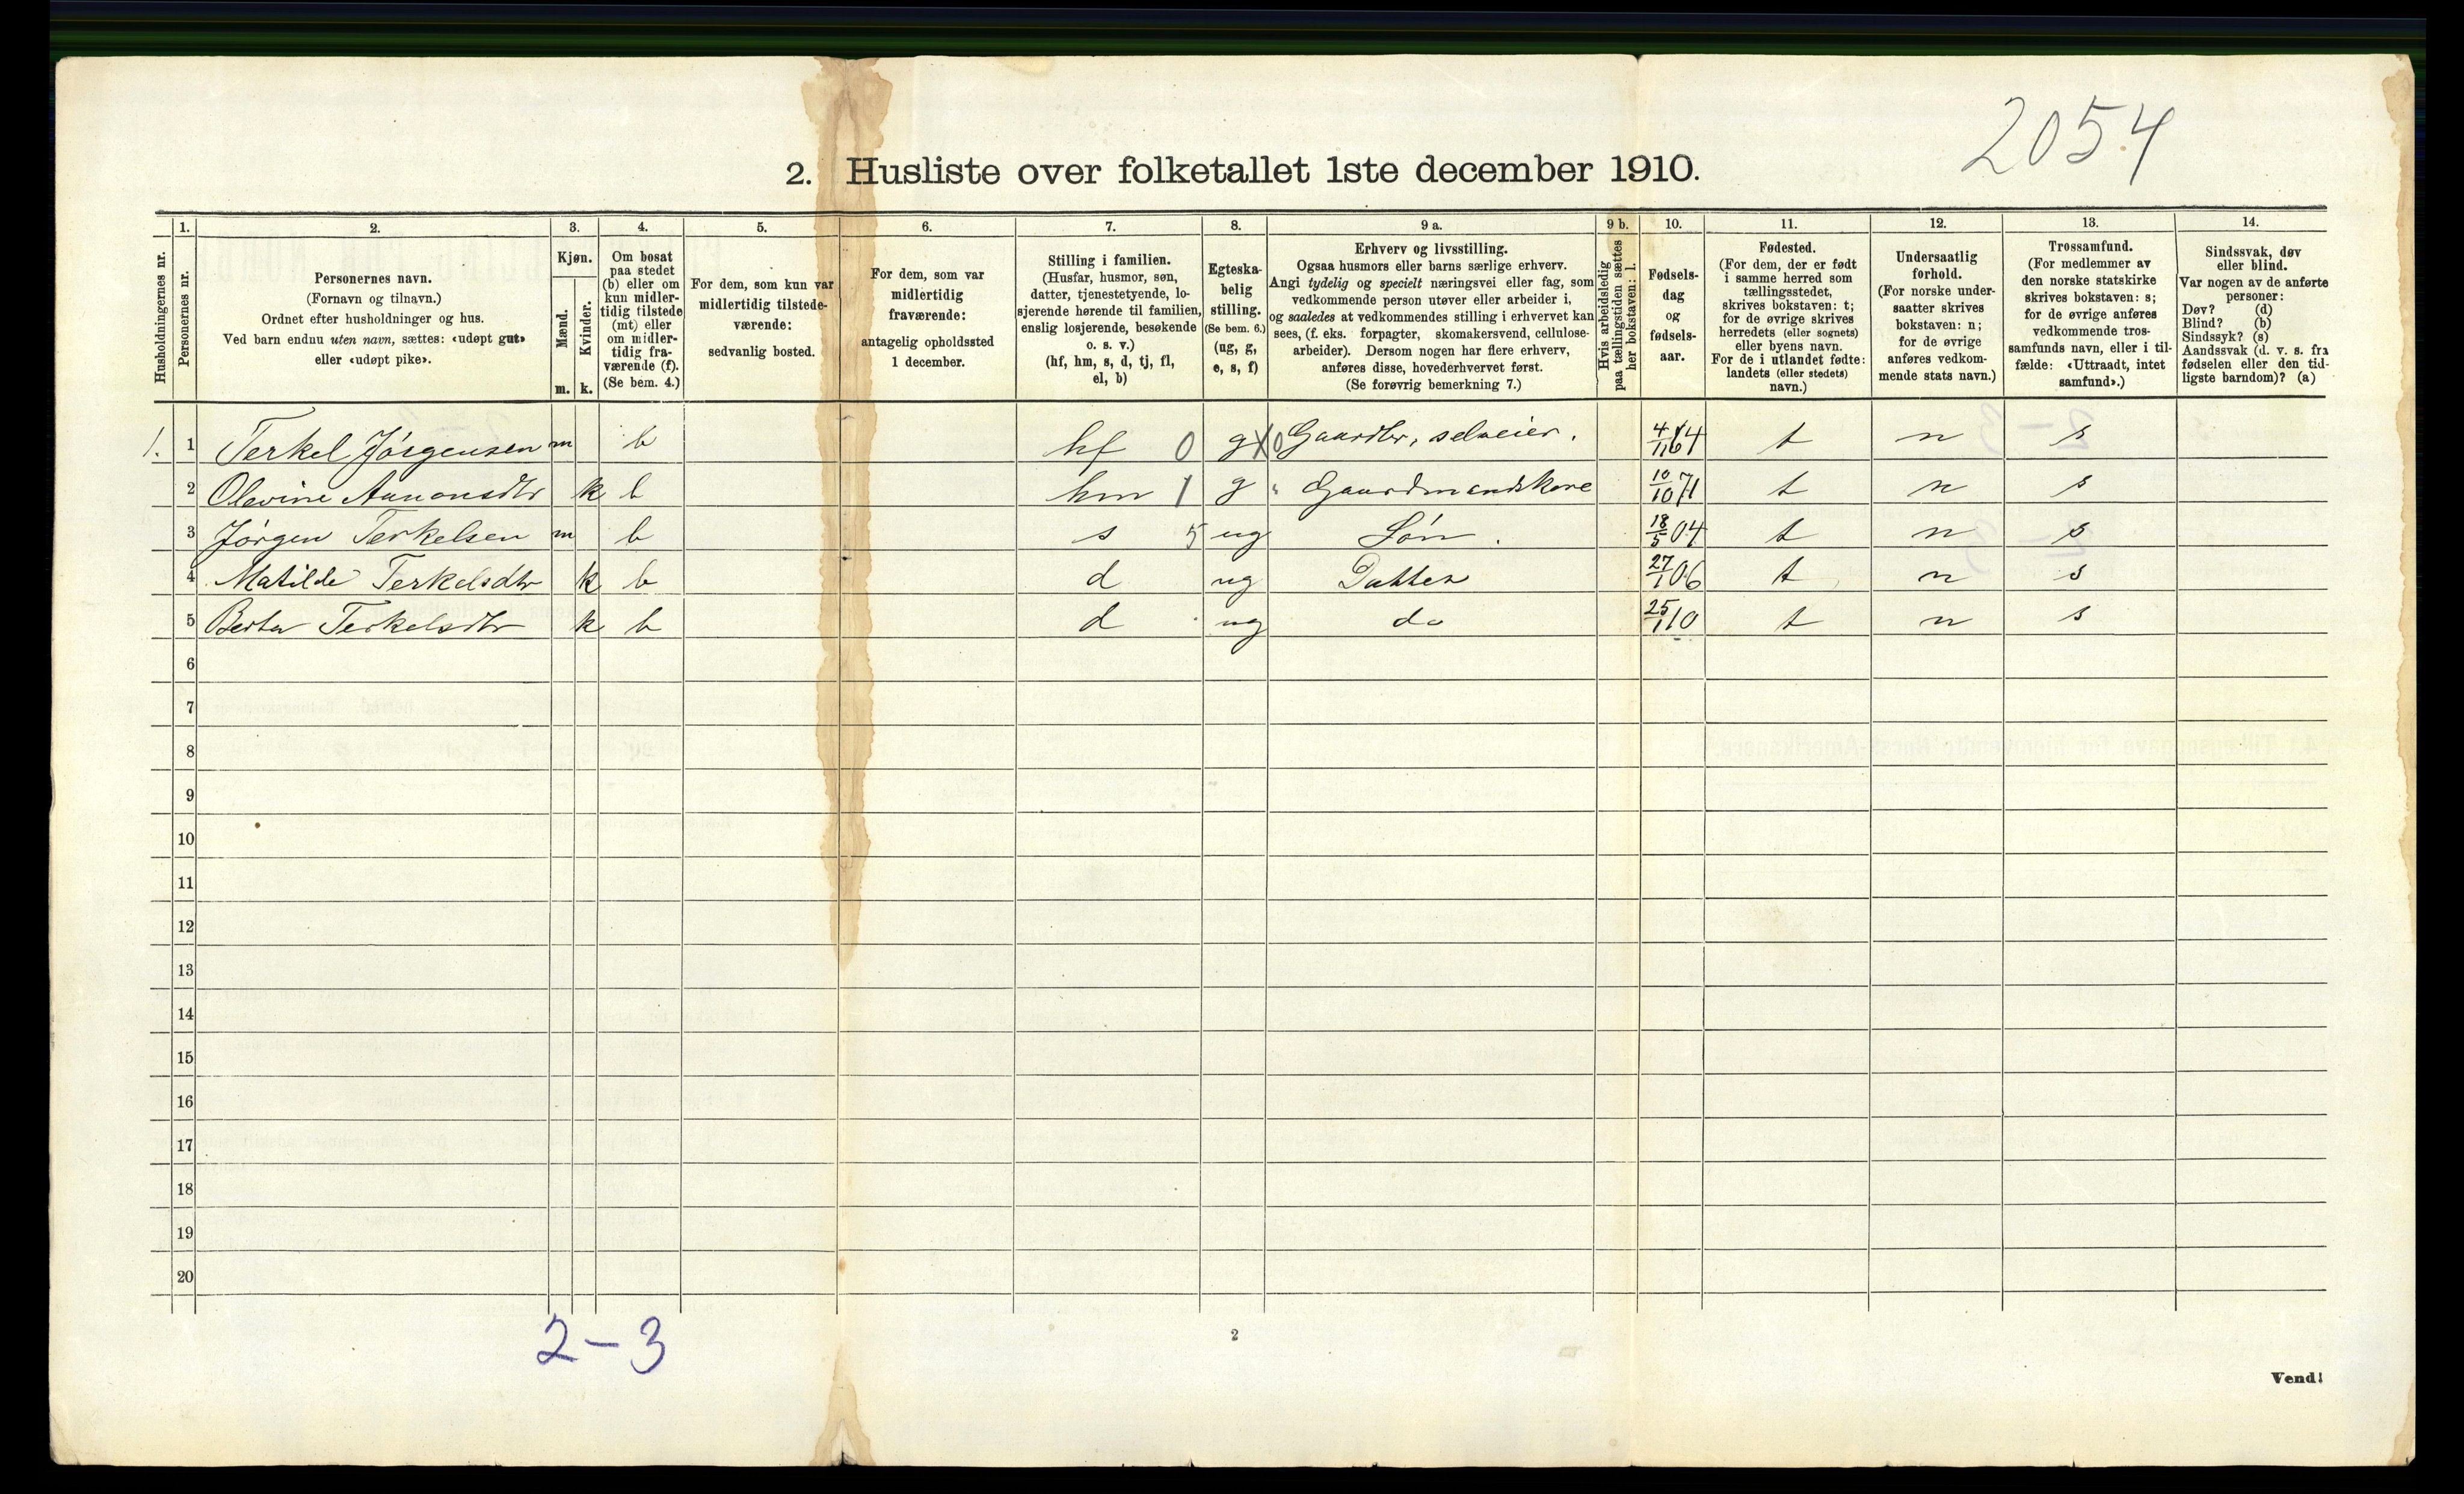 2054
2. Husliste over folketallet 1ste december 1910.
Husholdningernes nr.
1.
Personernes nr.
2.
Personernes navn.
(Fornavn og tilnavn.)
Ordnet efter husholdninger og hus.
Ved barn endnu uten navn, sættes: «udøpt gut»
eller «udøpt pike».
3.
Kjøn.
Mænd.
m.
Kvinder.
k.
4.
Om bosat
paa stedet
(b) eller om
kun midler-
tidig tilstede
(mt) eller
om midler-
tidig fra-
værende (f).
(Se bem. 4.)
5.
For dem, som kun var
midlertidig tilstede-
værende:
sedvanlig bosted.
6.
For dem, som var
midlertidig
fraværende:
antagelig opholdssted
1 december.
7.
Stilling i familien.
(Husfar, husmor, søn,
datter, tjenestetyende, lo-
sjerende hørende til familien,
enslig losjerende, besøkende
o. s. v.)
(hf, hm, s, d, tj, fl,
el, b)
8.
Egteska-
belig
stilling.
(Se bem. 6.)
(ug, g,
e, s, f)
9 a.
Erhverv og livsstilling.
Ogsaa husmors eller barns særlige erhverv.
Angi tydelig og specielt næringsvei eller fag, som
vedkommende person utøver eller arbeider i,
og saaledes at vedkommendes stilling i erhvervet kan
sees, (f. eks. forpagter, skomakersvend, cellulose-
arbeider). Dersom nogen har flere erhverv,
anføres disse, hovederhvervet først.
(Se forøvrig bemerkning 7.)
9 b.
Hvis arbeidsledig
paa tællingstiden sættes
her bokstaven: l.
10.
Fødsels-
dag
og
fødsels-
aar.
11.
Fødested.
(For dem, der er født
i samme herred som
tællingsstedet,
skrives bokstaven: t;
for de øvrige skrives
herredets (eller sognets)
eller byens navn.
For de i utlandet fødte:
landets (eller stedets)
navn.)
12.
Undersaatlig
forhold.
(For norske under-
saatter skrives
bokstaven: n;
for de øvrige
anføres vedkom-
mende stats navn.)
13.
Trossamfund.
(For medlemmer av
den norske statskirke
skrives bokstaven: s;
for de øvrige anføres
vedkommende tros-
samfunds navn, eller i til-
fælde: «Uttraadt, intet
samfund».)
14.
Sindssvak, døv
eller blind.
Var nogen av de anførte
personer:
Døv? (d)
Blind? (b)
Sindssyk? (s)
Aandssvak (d. v. s. fra
fødselen eller den tid-
ligste barndom)? (a)
1. 1 Terkel Jørgensen m b hf 0 g X0 Gaardbr, selveier. 4/11 64 t n s
2 Olevine Aanonsdtr k b hm 1 g " Gaardmandskone 10/10 71 t n s
3 Jørgen Terkelsen m b s 5 ug Søn. 18/5 04 t n s
4 Matilde Terkelsdtr k b d ug Datter 27/1 06 t n s
5 Berta Terkelsdtr k b d ug do 25/1 10 t n s
6
7
8
9
10
11
12
13
14
15
16
17
18
19
20
2-3
2
Vend!